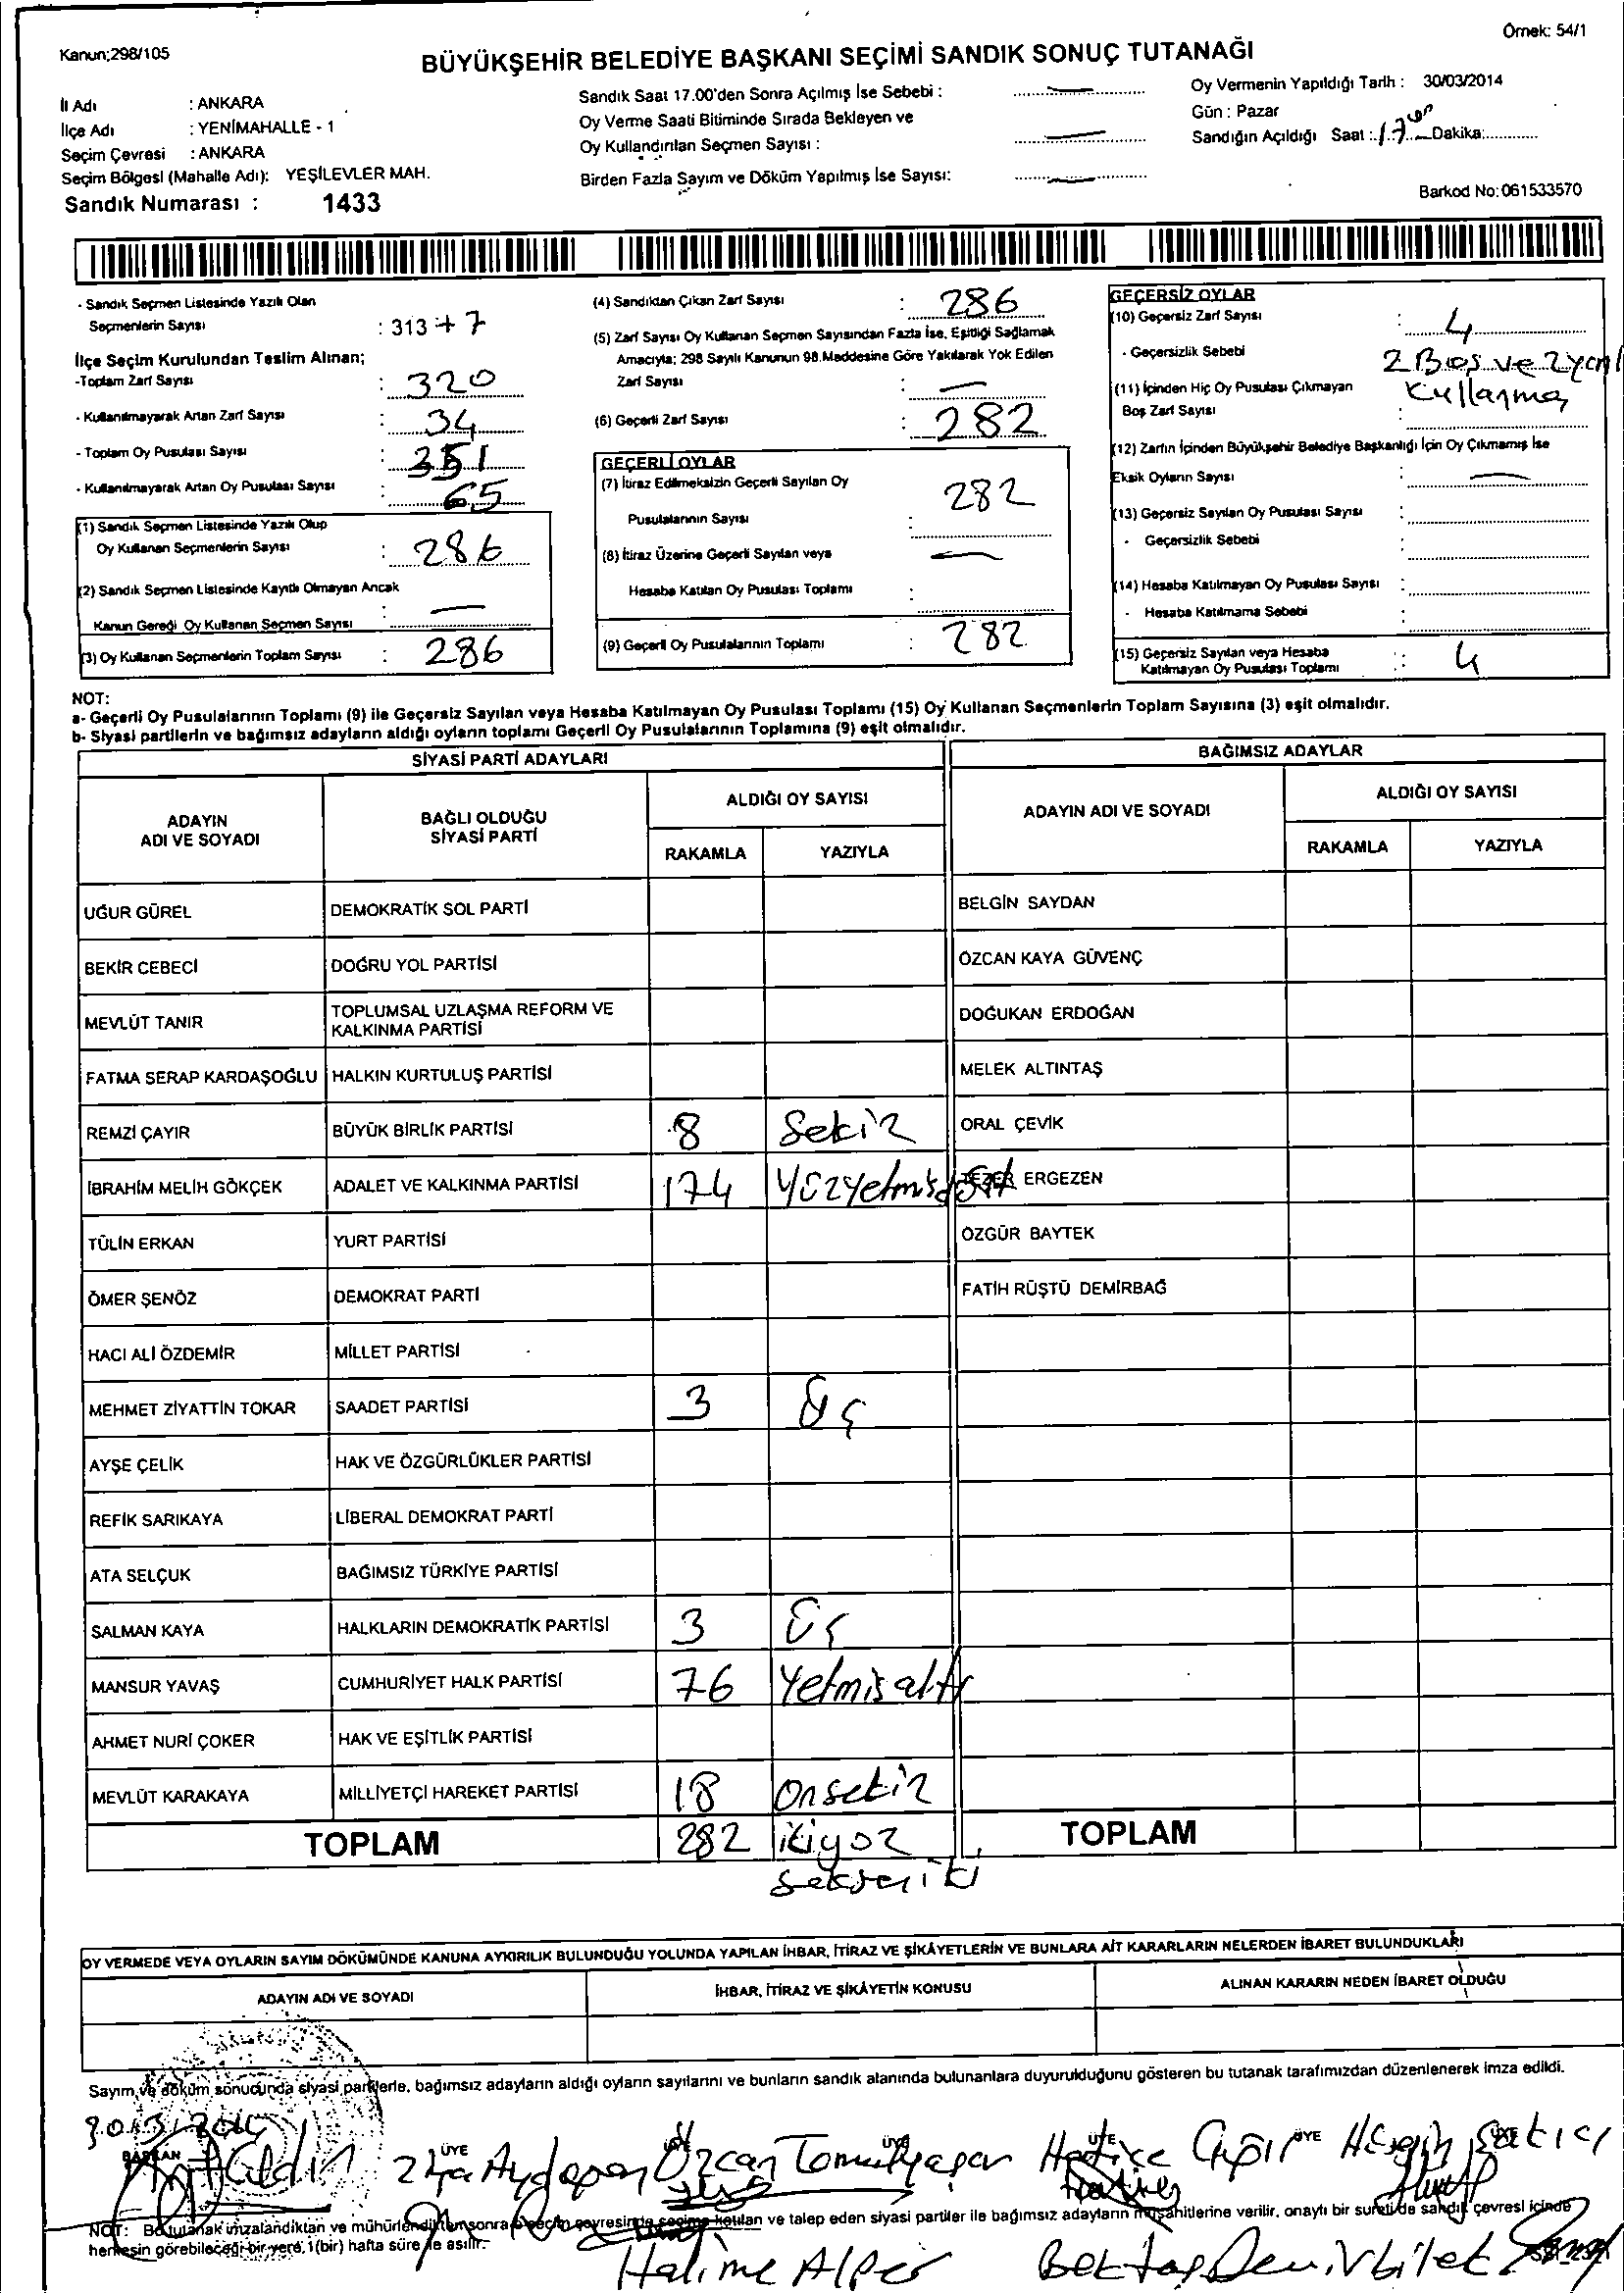 Kanun;298/105
Örnek: 54/1
BÜYÜKŞEHİR BELEDİYE BAŞKANI SEÇİMİ SANDIK SONUÇ TUTANAĞI
İl Adı : ANKARA
İlçe Adı : YENİMAHALLE - 1
Seçim Çevresi : ANKARA
Seçim Bölgesi (Mahalle Adı): YEŞİLEVLER MAH.
Sandık Numarası : 1433
Sandık Saat 17.00'den Sonra Açılmış İse Sebebi :
Oy Verme Saati Bitiminde Sırada Bekleyen ve
Oy Kullandırılan Seçmen Sayısı :
Birden Fazla Sayım ve Döküm Yapılmış İse Sayısı:
Oy Vermenin Yapıldığı Tarih : 30/03/2014
Gün : Pazar
Sandığın Açıldığı Saat : 17 Dakika:
Barkod No: 061533570
- Sandık Seçmen Listesinde Yazılı Olan
Seçmenlerin Sayısı : 313 + 7
İlçe Seçim Kurulundan Teslim Alınan;
-Toplam Zarf Sayısı : 320
- Kullanılmayarak Artan Zarf Sayısı : 34
- Toplam Oy Pusulası Sayısı : 351
- Kullanılmayarak Artan Oy Pusulası Sayısı : 65
(1) Sandık Seçmen Listesinde Yazılı Olup
Oy Kullanan Seçmenlerin Sayısı : 286
(2) Sandık Seçmen Listesinde Kayıtlı Olmayan Ancak
Kanun Gereği Oy Kullanan Seçmen Sayısı : —
(3) Oy Kullanan Seçmenlerin Toplam Sayısı : 286
(4) Sandıktan Çıkan Zarf Sayısı : 286
(5) Zarf Sayısı Oy Kullanan Seçmen Sayısından Fazla İse, Eşitliği Sağlamak
Amacıyla; 298 Sayılı Kanunun 98.Maddesine Göre Yakılarak Yok Edilen
Zarf Sayısı : —
(6) Geçerli Zarf Sayısı : 282
GEÇERLİ OYLAR
(7) İtiraz Edilmeksizin Geçerli Sayılan Oy
Pusulalarının Sayısı : 282
(8) İtiraz Üzerine Geçerli Sayılan veya
Hesaba Katılan Oy Pusulası Toplamı : —
(9) Geçerli Oy Pusulalarının Toplamı : 282
GEÇERSİZ OYLAR
(10) Geçersiz Zarf Sayısı : 4
- Geçersizlik Sebebi 2 Boş ve 2 yanl
kullanma
(11) İçinden Hiç Oy Pusulası Çıkmayan
Boş Zarf Sayısı :
(12) Zarfın İçinden Büyükşehir Belediye Başkanlığı İçin Oy Çıkmamış İse
Eksik Oyların Sayısı : —
(13) Geçersiz Sayılan Oy Pusulası Sayısı :
- Geçersizlik Sebebi :
(14) Hesaba Katılmayan Oy Pusulası Sayısı :
- Hesaba Katılmama Sebebi :
(15) Geçersiz Sayılan veya Hesaba
Katılmayan Oy Pusulası Toplamı : 4
NOT:
a- Geçerli Oy Pusulalarının Toplamı (9) ile Geçersiz Sayılan veya Hesaba Katılmayan Oy Pusulası Toplamı (15) Oy Kullanan Seçmenlerin Toplam Sayısına (3) eşit olmalıdır.
b- Siyasi partilerin ve bağımsız adayların aldığı oyların toplamı Geçerli Oy Pusulalarının Toplamına (9) eşit olmalıdır.
SİYASİ PARTİ ADAYLARI
BAĞIMSIZ ADAYLAR
ADAYIN ADI VE SOYADI
BAĞLI OLDUĞU SİYASİ PARTİ
ALDIĞI OY SAYISI
RAKAMLA YAZIYLA
ADAYIN ADI VE SOYADI
ALDIĞI OY SAYISI
RAKAMLA YAZIYLA
UĞUR GÜREL DEMOKRATİK SOL PARTİ BELGİN SAYDAN
BEKİR CEBECİ DOĞRU YOL PARTİSİ ÖZCAN KAYA GÜVENÇ
MEVLÜT TANIR TOPLUMSAL UZLAŞMA REFORM VE KALKINMA PARTİSİ DOĞUKAN ERDOĞAN
FATMA SERAP KARDAŞOĞLU HALKIN KURTULUŞ PARTİSİ MELEK ALTINTAŞ
REMZİ ÇAYIR BÜYÜK BİRLİK PARTİSİ 8 Sekiz ORAL ÇEVİK
İBRAHİM MELİH GÖKÇEK ADALET VE KALKINMA PARTİSİ 174 Yüzyetmişdört ERGEZEN
TÜLİN ERKAN YURT PARTİSİ ÖZGÜR BAYTEK
ÖMER ŞENÖZ DEMOKRAT PARTİ FATİH RÜŞTÜ DEMİRBAĞ
HACI ALİ ÖZDEMİR MİLLET PARTİSİ
MEHMET ZİYATTİN TOKAR SAADET PARTİSİ 3 Üç
AYŞE ÇELİK HAK VE ÖZGÜRLÜKLER PARTİSİ
REFİK SARIKAYA LİBERAL DEMOKRAT PARTİ
ATA SELÇUK BAĞIMSIZ TÜRKİYE PARTİSİ
SALMAN KAYA HALKLARIN DEMOKRATİK PARTİSİ 3 Üç
MANSUR YAVAŞ CUMHURİYET HALK PARTİSİ 76 Yetmişaltı
AHMET NURİ ÇOKER HAK VE EŞİTLİK PARTİSİ
MEVLÜT KARAKAYA MİLLİYETÇİ HAREKET PARTİSİ 18 Onsekiz
TOPLAM 282 ikiyüz TOPLAM
sekseniki
OY VERMEDE VEYA OYLARIN SAYIM DÖKÜMÜNDE KANUNA AYKIRILIK BULUNDUĞU YOLUNDA YAPILAN İHBAR, İTİRAZ VE ŞİKÂYETLERİN VE BUNLARA AİT KARARLARIN NELERDEN İBARET BULUNDUKLARI
ADAYIN ADI VE SOYADI İHBAR, İTİRAZ VE ŞİKÂYETİN KONUSU ALINAN KARARIN NEDEN İBARET OLDUĞU
Sayım ve döküm sonucunda siyasi partilerle, bağımsız adayların aldığı oyların sayılarını ve bunların sandık alanında bulunanlara duyurulduğunu gösteren bu tutanak tarafımızdan düzenlenerek imza edildi.
BAŞKAN ÜYE ÜYE ÜYE ÜYE
Özcan Hatice
NOT: Bu tutanak imzalandıktan ve mühürlendikten sonra seçim çevresinde seçime katılan ve talep eden siyasi partiler ile bağımsız adayların müşahitlerine verilir, onaylı bir sureti de sandık çevresi içinde
herkesin görebileceği bir yere, 1(bir) hafta süre ile asılır.
Halime Alper Bektaş